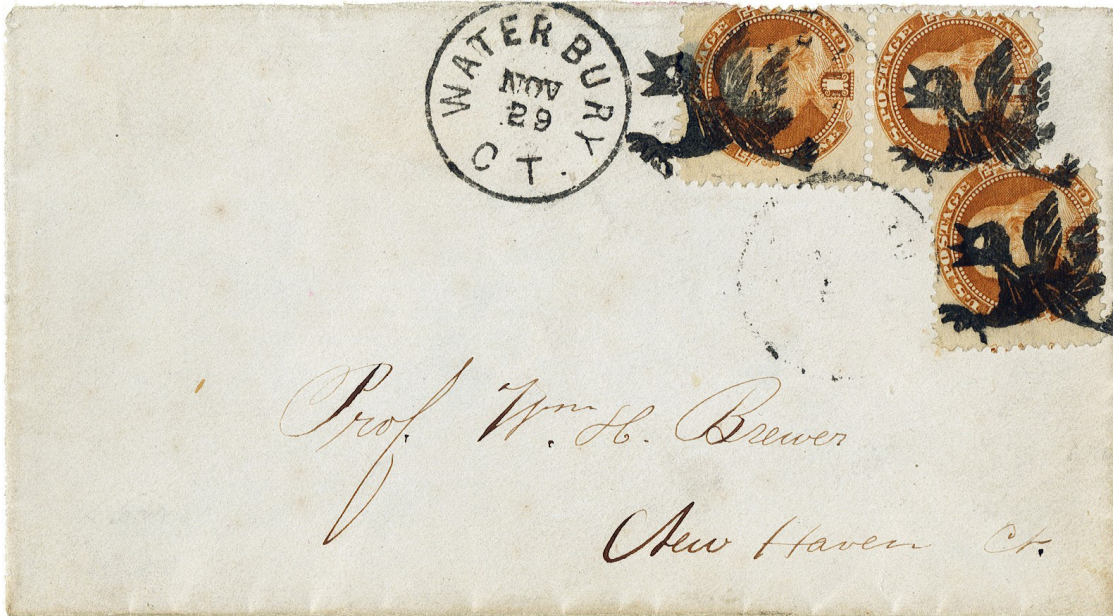 WATERBURY
NOV
29
CT.
U.S. POSTAGE
1
U.S. POSTAGE
U.S. POSTAGE
Prof. Wm. H. Brewer
New Haven Ct.